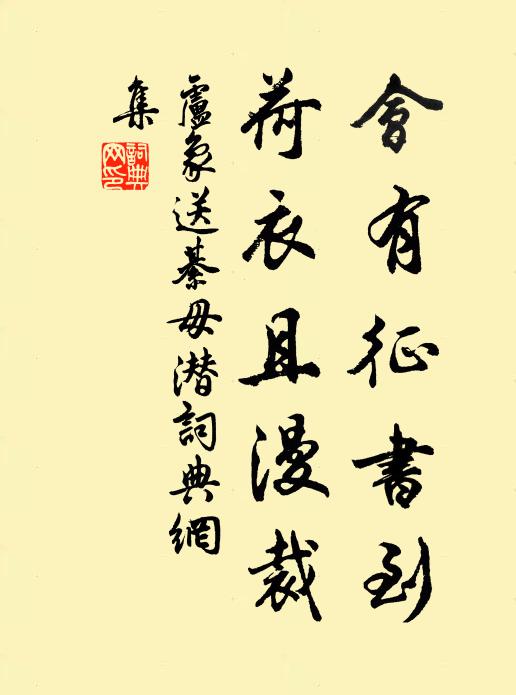 會有征書到
荷衣且漫裁
盧象送綦毋潛詞典網
集
詞典網印